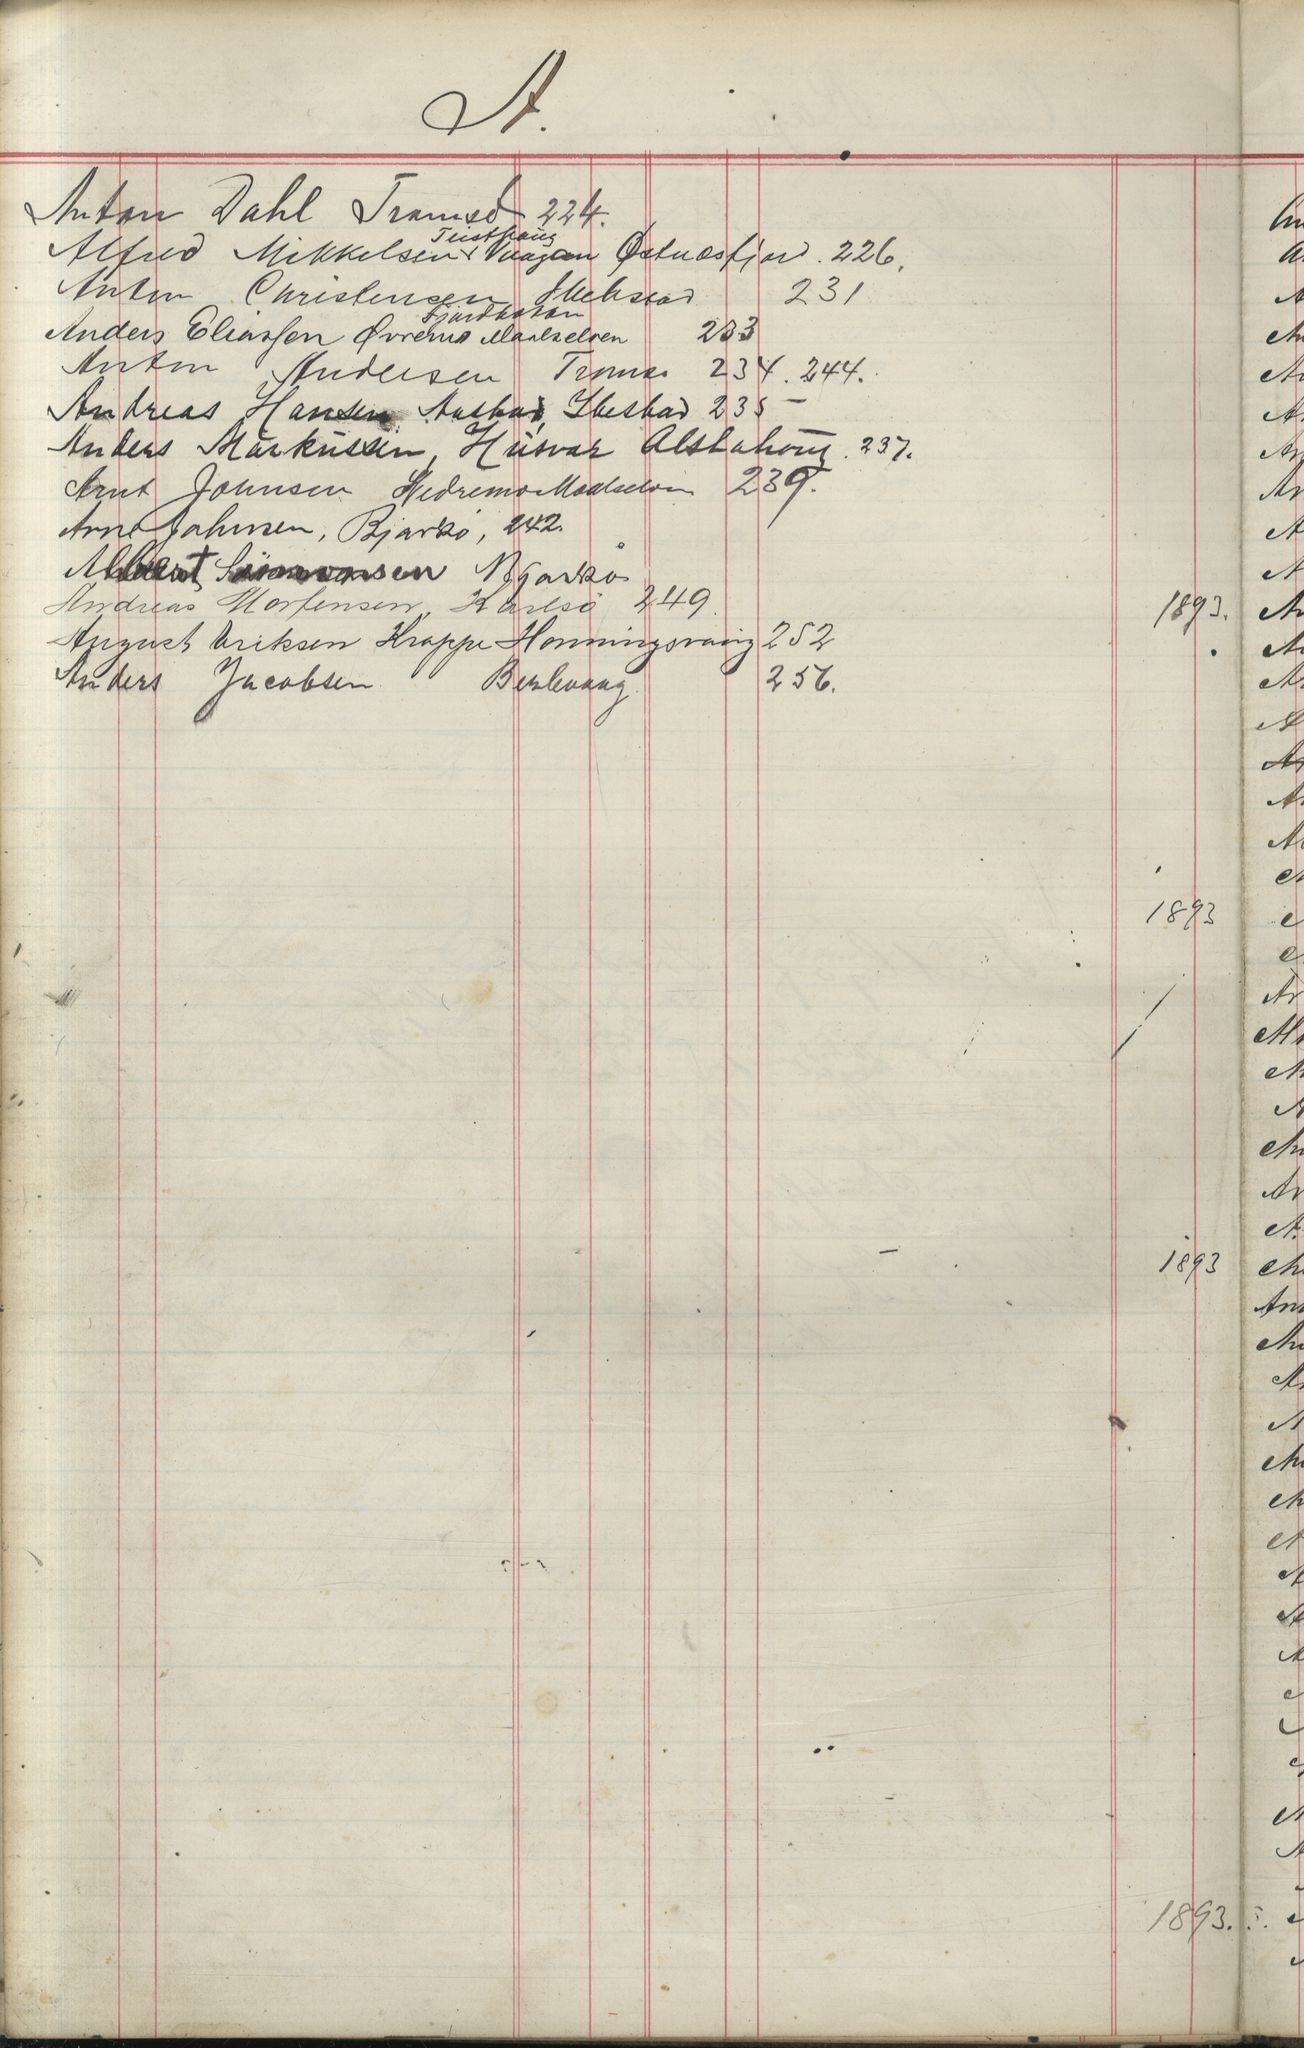 A.
Anton Dahl Tromsö 224.
Alfred Mikkelsen Vaagan Østnæsfjord. 226.
Anton Christensen Ibestad 231
Fjordbotten
Anders Eliassen Øvremo Maalselven 233
Anton Andersen Tromsø 234. 244.
Andreas Hansen Ibestad 235
Anders Markussen, Husvær Alstahoug. 237.
Arnt Johnsen Nedremo Maalselven 239.
Arnt Johnsen, Bjarkö, 242.
Albert Bjarkö
Andreas Mortensen, Karlsö 249
1893.
August Eriksen Krappe Honningsvaag 252
Anders Jacobsen Berlevaag 256.
1893
1893
1893.